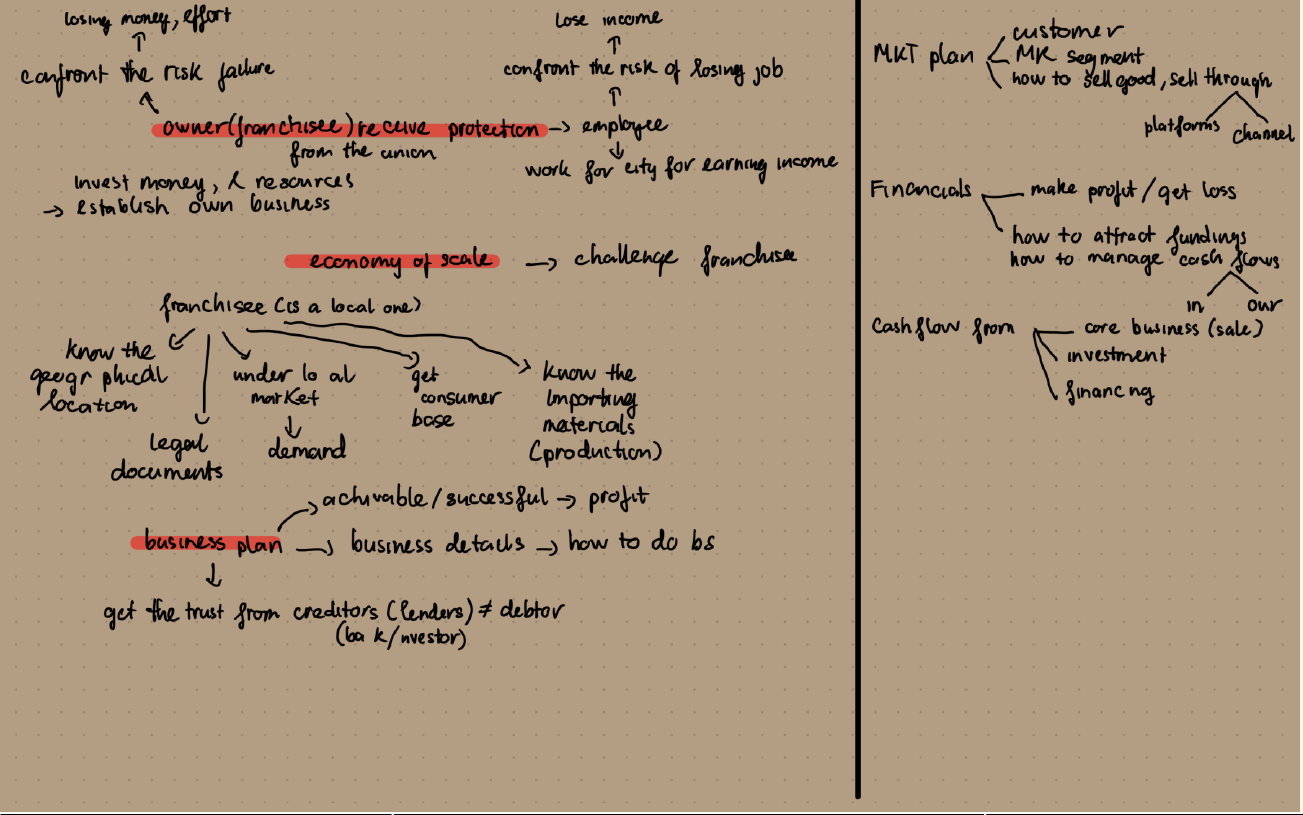 losing money, effort
confront the risk failure
owner(franchisee) receive protection → employee
from the union
Invest money, & resources
→ establish own business
lose income
confront the risk of losing job
work for city for earning income
economy of scale → challenge franchisee
franchisee (is a local one)
know the
geogr phical
location
legal
documents
under lo al
market
demand
get
consumer
base
know the
importing
materials
(production)
achivable/successful → profit
business plan → business details → how to do bs
get the trust from creditors (lenders) ≠ debtor
(ba k/nvestor)
MKT plan
customer
MK segment
how to sell good, sell through
platforms
channel
Financials
make profit / get loss
how to attract fundings
how to manage cash flows
in
our
Cash flow from
core business (sale)
investment
financing